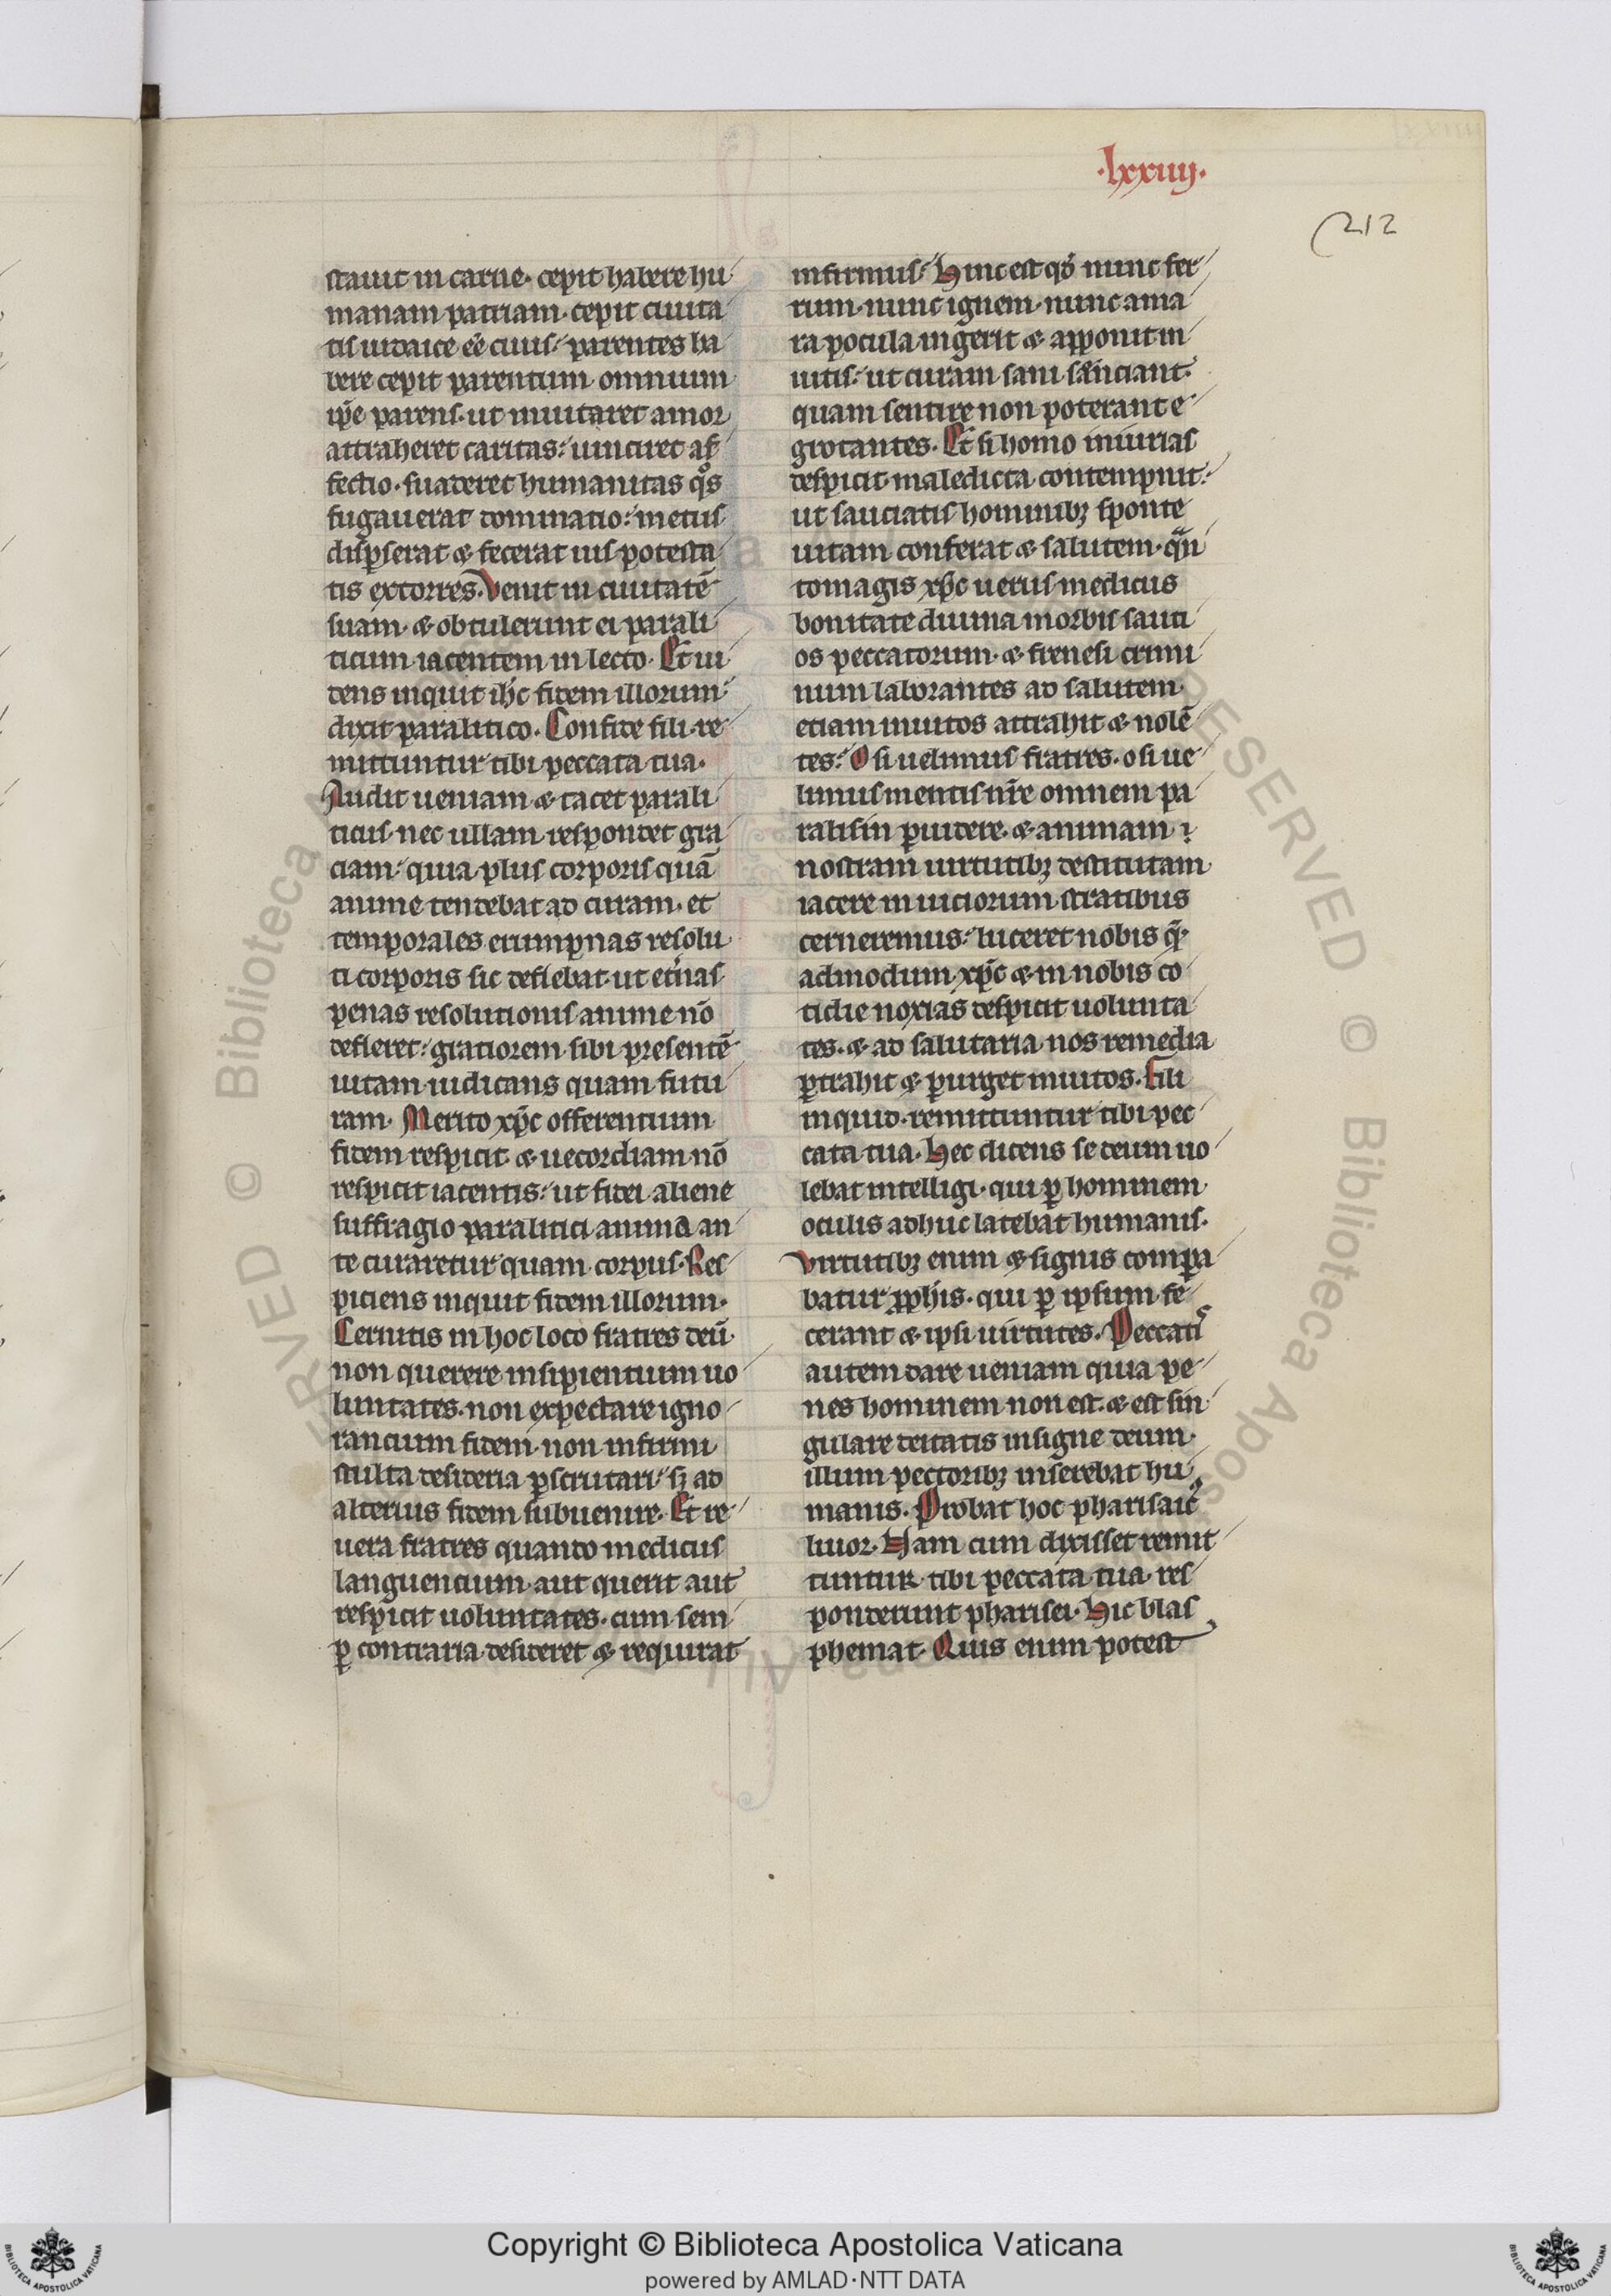 ·lxxiiij·
212
stauit in carne· cepit habere hu
manam patriam· cepit ciuita
tis iudaice eẽ ciuis· parentes ha
bere cepit parentum omnium
ip̃e parens· ut inuitaret amor
attraheret caritas· uinciret af
fectio· suaderet humanitas qͦs
fugauerat dominatio· metus
disꝑserat ⁊ fecerat uis potesta
tis extorres. Venit in ciuitatẽ
suam· ⁊ obtulerunt ei parali
ticum iacentem in lecto· Et ui
dens inquit ih̃c fidem illorum
dixit paralitico· Confide fili· re
mittuntur tibi peccata tua·
Audit ueniam ⁊ tacet parali
ticus· nec ullam respondet gra
ciam· quia plus corporis quã
anime tendebat ad curam· et
temporales erumpnas resolu
ti corporis sic deflebat· ut et̃nas
penas resolutionis anime nõ
defleret· gratiorem sibi presentẽ
uitam iudicans quam futu
ram· Merito xp̃c offerentium
fidem respicit ⁊ uecordiam nõ
respicit iacentis· ut fidei aliene
suffragio paralitici anima an
te curaretur quam corpus· Res
piciens inquit fidem illorum·
Cernitis in hoc loco fratres deũ
non querere insipientium uo
luntates· non expectare igno
rancium fidem· non infirmi
stulta desideria ꝑscrutari· sꝫ ad
alterius fidem subuenire· Et re
uera fratres quando medicus
languencium aut querit aut
respicit uoluntates· cum sem
ꝑ contraria desideret ⁊ requirat
infirmus· Hinc est qď nunc fer
rum· nunc ignem· nunc ama
ra pocula ingerit ⁊ apponit in
uitis· ut curam sani senciant
quam sentire non poterant e
grotantes· Et si homo iniurias
despicit· maledicta contempnit·
ut sauciatis hominibꝫ sponte
uitam conferat ⁊ salutem· qͣn
to magis xp̃c uerus medicus
bonitate diuina morbis sauci
os peccatorum· ⁊ frenesi crimi
num laborantes ad salutem
etiam inuitos attrahit ⁊ nolẽ
tes· O si uelimus fratres· o si ue
limus mentis nr̃e omnem pa
ralisin ꝑuidere· ⁊ animam
nostram uirtutibꝫ destitutam
iacere in uiciorum stratibus
cerneremus· luceret nobis q̃·
admodum xp̃c ⁊ in nobis co
tidie noxias despicit uolunta
tes· ⁊ ad salutaria nos remedia
ꝑtrahit ⁊ ꝑurget inuitos· Fili
inquid· remittuntur tibi pec
cata tua· Hec dicens se deum uo
lebat intelligi· qui ꝑ hominem
oculis adhuc latebat humanis·
Virtutibꝫ enim ⁊ signis compa
batur ꝓph̃is· qui ꝑ ipsum fe
cerant ⁊ ipsi uirtutes· Peccatiˢ
autem dare ueniam quia pe
nes hominem non est· ⁊ est sin
gulare deitatis insigne deum
illum pectoribꝫ inserebat hu
manis· Probat hoc pharisaicꝰ
liuor· Nam cum dixisset remit
tuntur tibi peccata tua· res
ponderunt pharisei· Hic blas
phemat· Quis enim potest
Copyright © Biblioteca Apostolica Vaticana
powered by AMLAD·NTT DATA